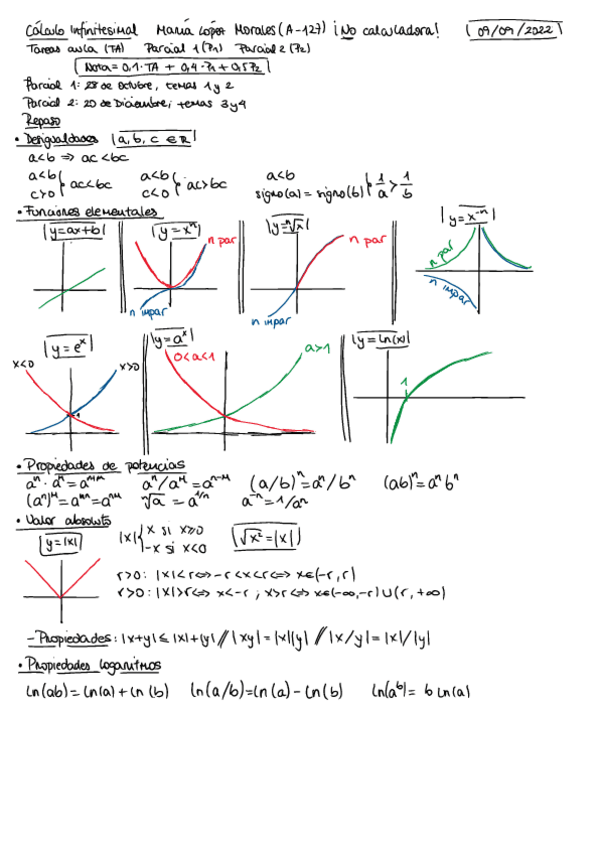 Cálculo Infinitesimal María López Morales (A-127) ¡No calculadora! (09/09/2022)
Tareas aula (TA) Parcial 1 (P1) Parcial 2 (P2)
Nota = 0,1·TA + 0,4·P1 + 0,5P2
Parcial 1: 28 de Octubre, temas 1 y 2
Parcial 2: 20 de Diciembre, temas 3 y 4
Repaso
• Desigualdades |a, b, c ∈ R|
a<b ⇒ ac<bc
a<b c>0 } ac<bc a<b c<0 } ac>bc a<b signo(a) = signo(b) } 1/a > 1/b
• Funciones elementales
y=ax+b y=xⁿ y=ⁿ√x y=x⁻ⁿ
n par n par n par
n impar n impar n impar
y=eˣ y=aˣ y=ln(x)
x<0 x>0 0<a<1 a>1 1
• Propiedades de potencias
aⁿ · aᴹ = aⁿ⁺ᴹ aⁿ/aᴹ = aⁿ⁻ᴹ (a/b)ⁿ = aⁿ/bⁿ (ab)ⁿ = aⁿbⁿ
(aⁿ)ᴹ = aᴹⁿ = aⁿᴹ ⁿ√a = a^1/n a⁻ⁿ = 1/aⁿ
• Valor absoluto
y=|x| |x| { x si x≥0 -x si x<0 √x² = |x|
r>0: |x|<r ⇔ -r<x<r ⇔ x∈(-r, r)
r>0: |x|>r ⇔ x<-r ; x>r ⇔ x∈(-∞,-r)∪(r, +∞)
- Propiedades: |x+y| ≤ |x|+|y| // |xy| = |x||y| // |x/y| = |x|/|y|
• Propiedades logaritmos
ln(ab) = ln(a) + ln(b) ln(a/b) = ln(a) - ln(b) ln(aᵇ) = b ln(a)